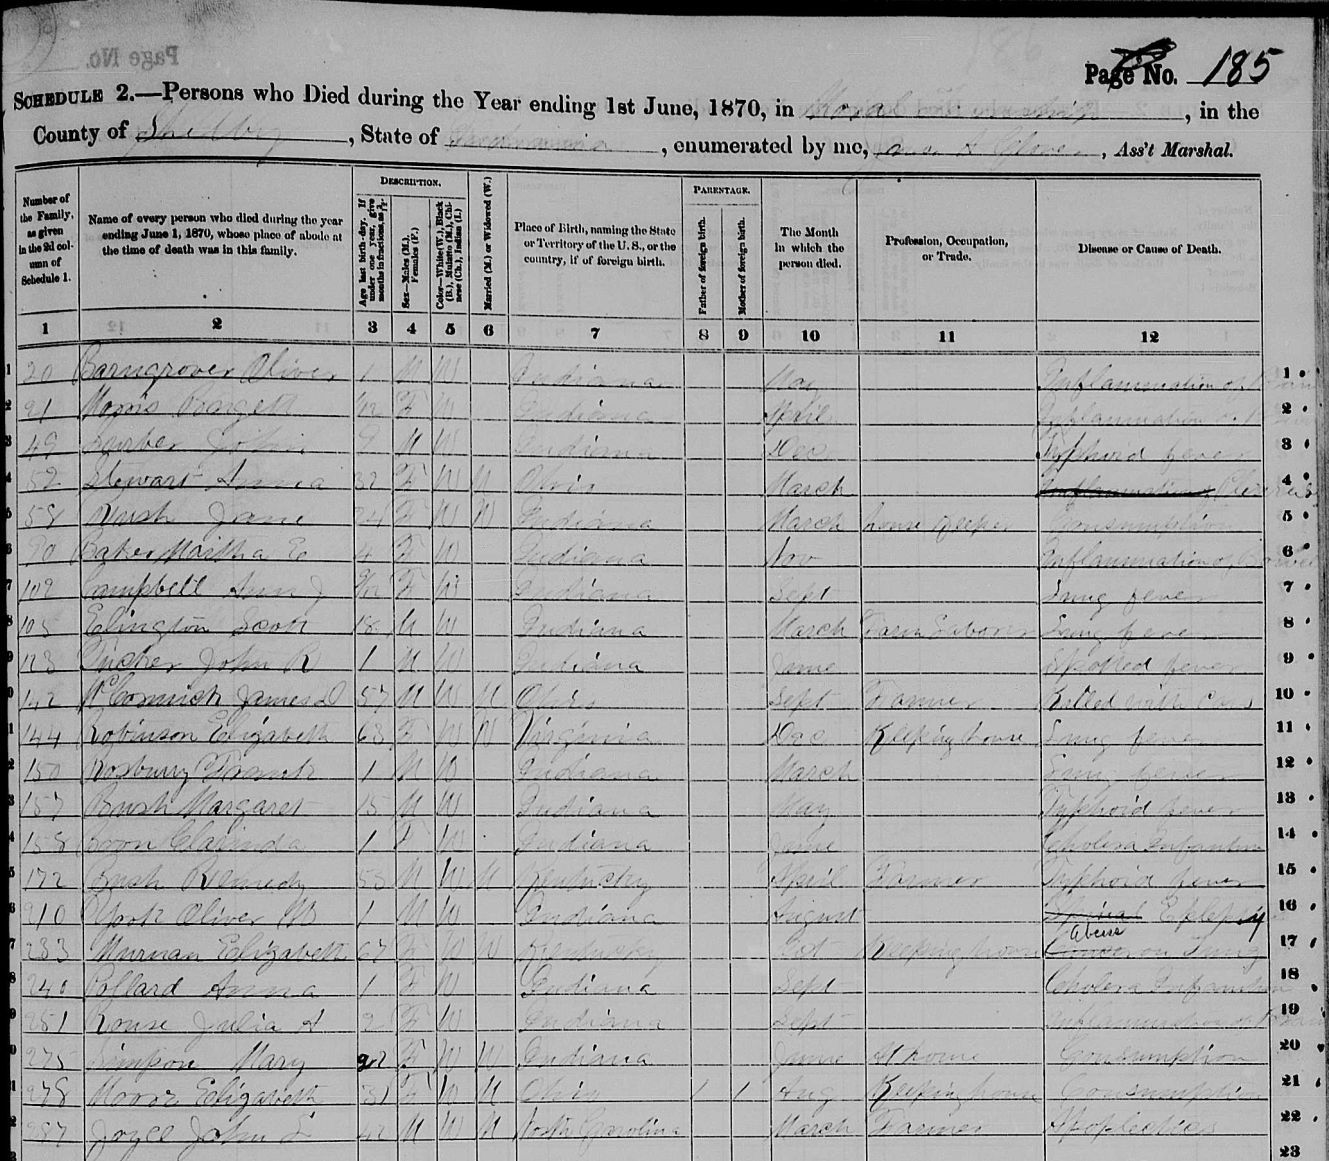 Page No. 185
SCHEDULE 2.—Persons who Died during the Year ending 1st June, 1870, in Moral Township, in the
County of Shelby, State of Indiana, enumerated by me, Ass't Marshal.
Number of the Family, as given in the 2d column of Schedule 1.
Name of every person who died during the year ending June 1, 1870, whose place of abode at the time of death was in this family.
DESCRIPTION.
Age last birth-day. If under one year, give months in fractions, as 3/12
Sex—Males (M.), Females (F.)
Color—White (W.), Black (B.), Mulatto (M.), Chinese (Ch.), Indian (I.)
Married (M.) or Widowed (W.)
Place of Birth, naming the State or Territory of the U. S., or the country, if of foreign birth.
PARENTAGE.
Father of foreign birth.
Mother of foreign birth.
The Month in which the person died.
Profession, Occupation, or Trade.
Disease or Cause of Death.
1 2 3 4 5 6 7 8 9 10 11 12
1 20 Barngrover Oliver 1 M W Indiana May Inflammation of
2 Morris F W Indiana April Inflammation of
3 49 John M W Indiana Dec Typhoid fever
4 52 Stewart Anna 32 F W M Ohio March
5 58 Jane F W Indiana March house Keeper Consumption
6 90 Baker Martha E 4 F W Indiana Nov Inflammation of Bowels
7 102 Campbell Ann J F W Indiana Sept Lung fever
8 105 Elington Scott 18 M W Indiana March Farm Laborer Lung fever
9 123 Tucker John R 1 M W Indiana June Spotted fever
10 142 McCormick James 57 M W M Ohio Sept Farmer Killed with Cars
11 144 Robinson Elizabeth 63 F W W Virginia Dec Keeping house Lung fever
12 150 Rosbury Frank 1 M W Indiana March Lung fever
13 157 Brush Margaret 15 M W Indiana May Typhoid fever
14 158 Boorn Clarinda 1 F W Indiana June Cholera Infantum
15 172 Bush 55 M W M Kentucky April Farmer Typhoid fever
16 210 York Oliver M 1 M W Indiana August Eplepsy
17 233 Murnan Elizabeth 67 F W W Kentucky Oct Keeping house Lung
18 240 Pollard Anna 1 F W Indiana Sept Cholera Infantum
19 251 Rouse Julia A 2 F W Indiana Sept Inflammation of
20 275 Simpson Mary F W W Indiana June At home Consumption
21 278 Moore Elizabeth 31 F W M Ohio 1 1 Aug Keeping house Consumption
22 287 Joyce John L 42 M W M North Carolina March Farmer
23